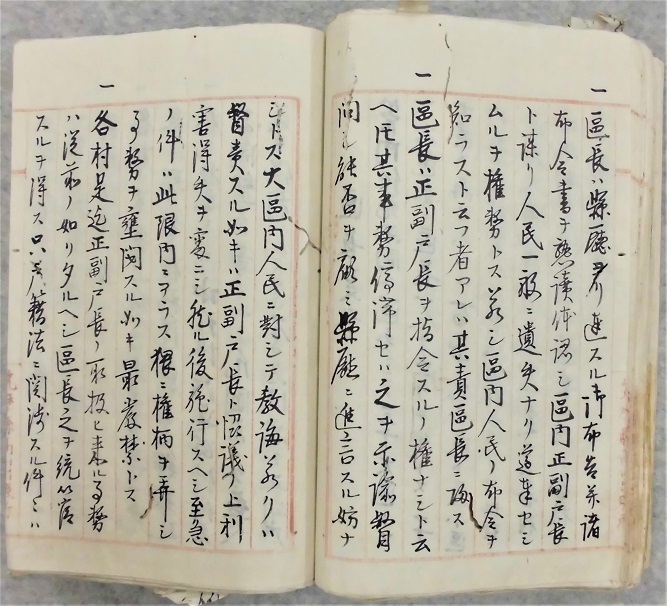 一
區長ハ縣廳ヨリ達スル御布告并諸
布令書ヲ熟讀体認シ區内正副戸長
ト謀リ人民一般ニ遺失ナク遵奉セシ
ムルヲ權務トス若シ區内人民ノ布令ヲ
知ラスト云フ者アレハ其責區長ニ歸ス
一
區長ハ正副戸長ヲ指令スルノ權ナシト云
ヘ𪜈其事務停滞セハ之ヲ示諭督
問シ能否ヲ顧ミ縣廳ニ進言スル妨ナ
シトス大區内人民ニ對シテ教誨若クハ
督責スル如キハ正副戸長ト恊議ノ上利
害得失ヲ変ニシ然ル後施行スヘシ至急
ノ件ハ此限内ニアラス猥ニ權柄ヲ弄シ
事務ヲ壅閼スル如キ最嚴禁トス
一
各村是迄正副戸長ノ取扱ヒ来ル事務
ハ従前ノ如クタルヘシ區長之ヲ統
スルヲ得ス只戸籍法ニ関渉スル件ニハ